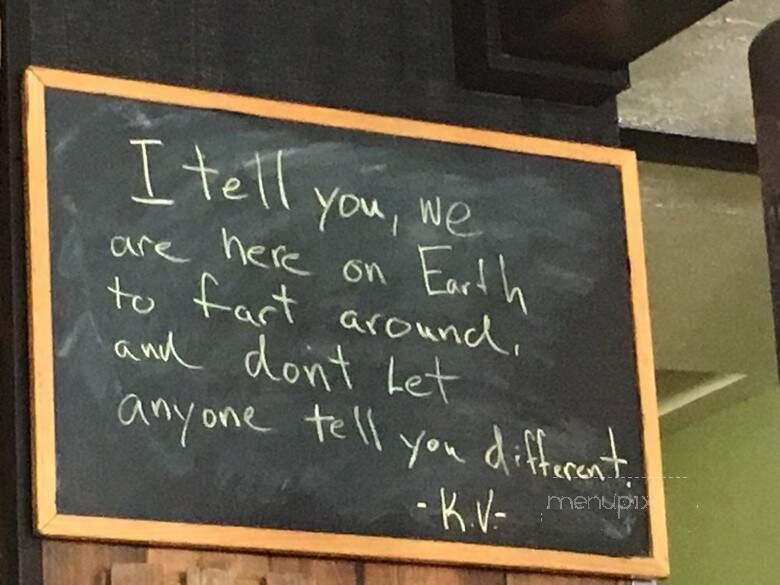 I tell you, we
are here on Earth
to fart around,
and dont Let
anyone tell you different.
-K.V-
menupix